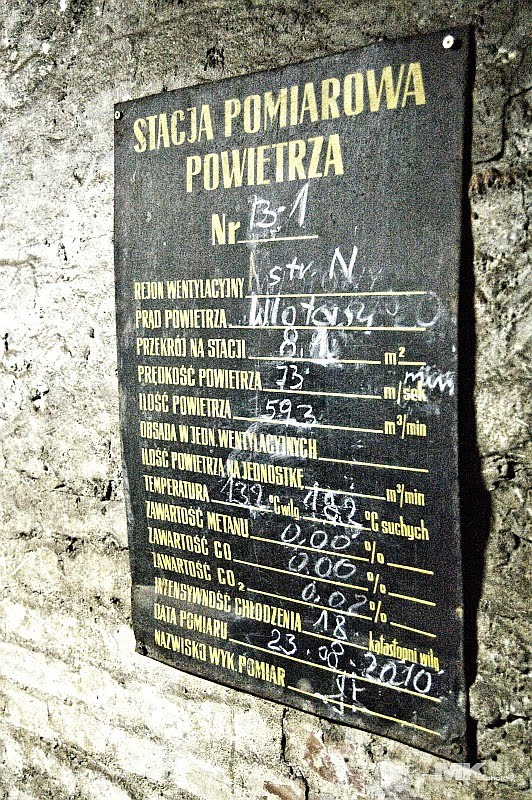 STACJA POMIAROWA
POWIETRZA
Nr B-1
REJON WENTYLACYJNY str. N
PRĄD POWIETRZA Wlotowy
PRZEKRÓJ NA STACJI 8,1 m²
PRĘDKOŚĆ POWIETRZA 73 m/sek min
ILOŚĆ POWIETRZA 593 m³/min
OBSADA W JEDN. WENTYLACYJNYCH
ILOŚĆ POWIETRZA NA JEDNOSTKĘ m³/min
TEMPERATURA 13,2 °C wilg. °C suchych
ZAWARTOŚĆ METANU 0,00 %
ZAWARTOŚĆ CO 0,00 %
ZAWARTOŚĆ CO₂ 0,02 %
INTENSYWNOŚĆ CHŁODZENIA 18 katastopni wilg.
DATA POMIARU 23.08.2010
NAZWISKO WYK. POMIAR
MK